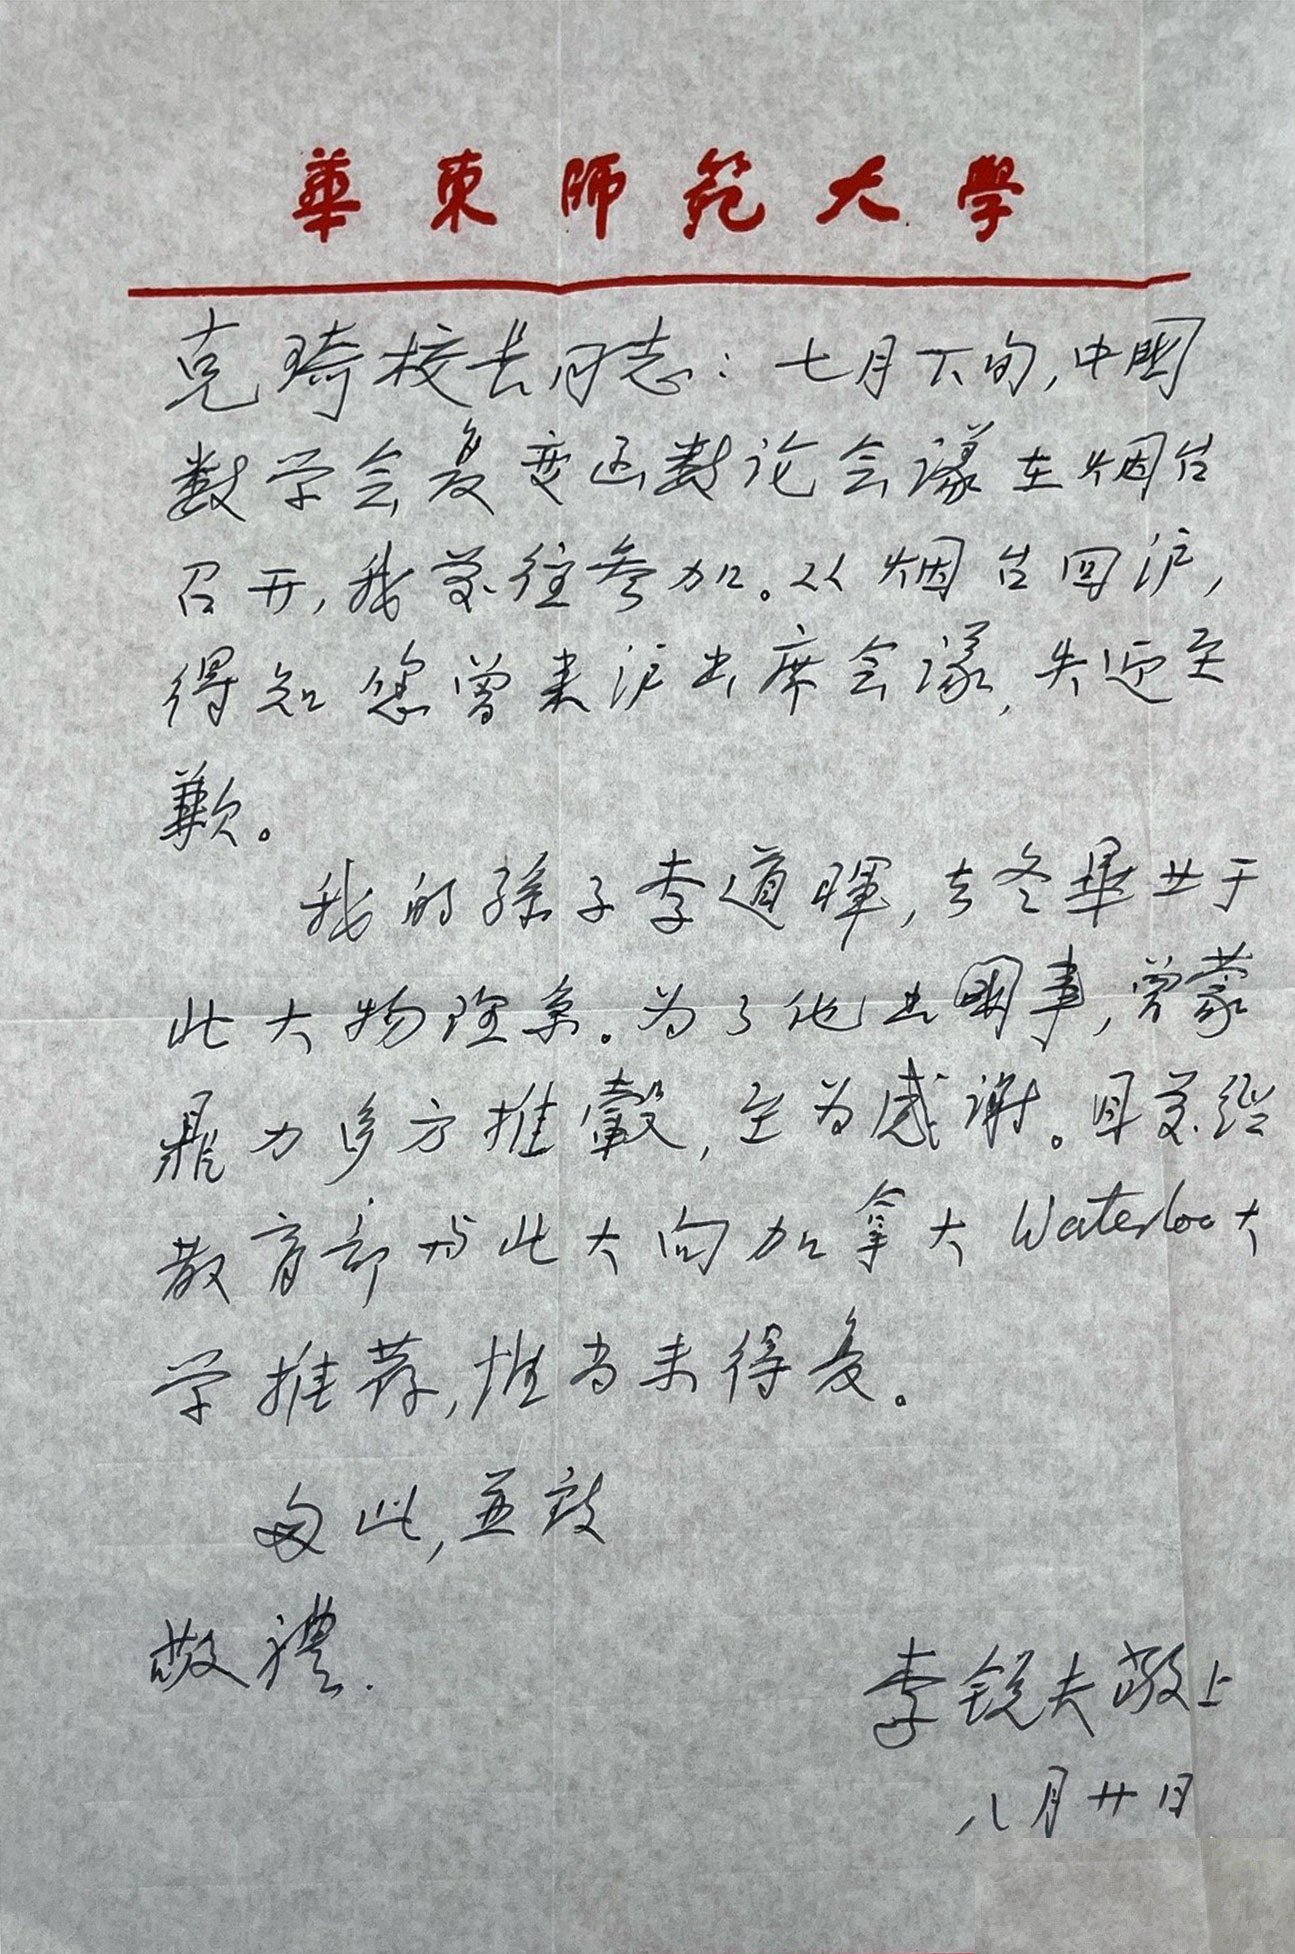 華東師範大學
克琦校长同志：七月下旬，中國
数学会复变函数论会議在烟台
召开，我前往参加。从烟台回沪，
得知您曾来沪出席会議，失迎至
歉。
我的孫子李道暉，去冬畢业于
北大物理系。为了他出國事，曾蒙
鼎力多方推轂，至为感谢。目前经
教育部与北大向加拿大Waterloo大
学推荐，惟尚未得复。
匆此，并致
敬禮.
李锐夫敬上
八月廿日